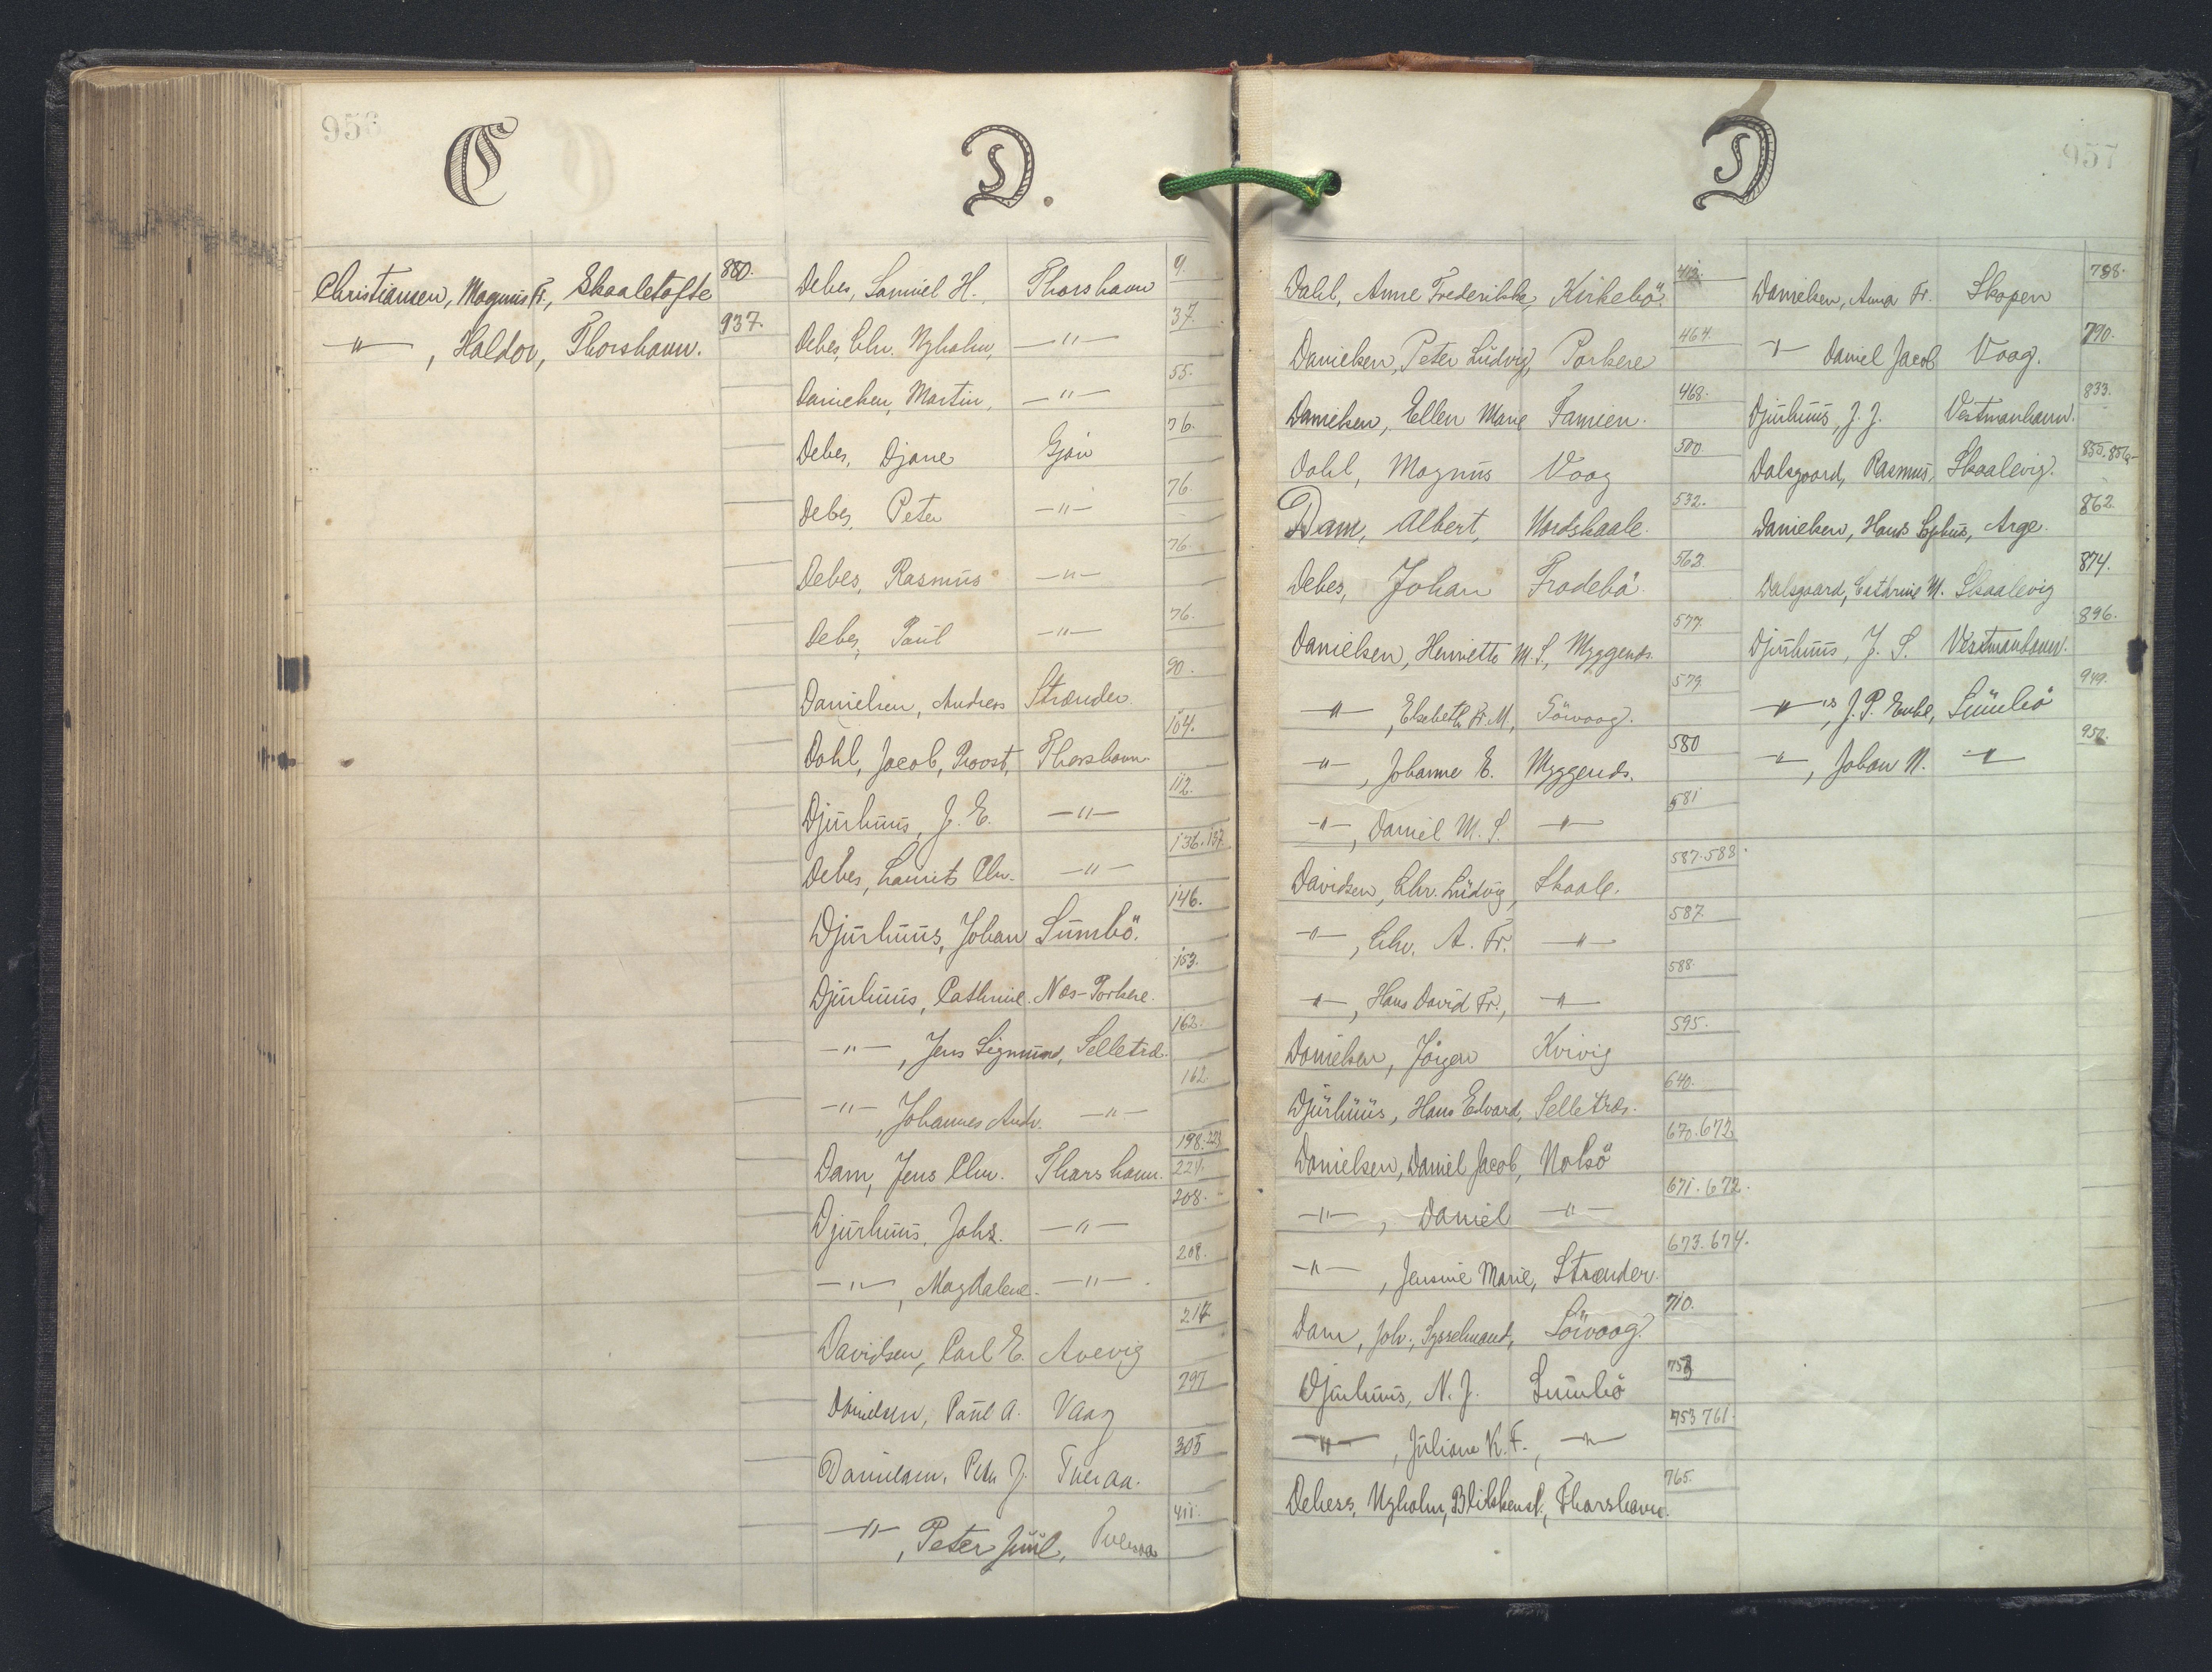 956
C
Christiansen, Magnus Fr., Skaaletofte 880.
—"—, Haldor, Thorshavn. 937.
D.
Debes, Samuel H. Thorshavn 9.
Debes, Chr. Nyholm, —"— 37.
Danielsen, Martin, —"— 55.
Debes, Djone Gjov 76.
Debes, Peter —"— 76.
Debes, Rasmus —"— 76.
Debes, Paul —"— 76.
Danielsen, Andreas Strænder. 90.
Dahl, Jacob, Provst, Thorshavn. 104.
Djurhuus, J. E. —"— 112.
Debes, Laurits Chr. —"— 136.137.
Djurhuus, Johan Sumbö. 146.
Djurhuus, Cathrine. Næs-Porkere. 153.
—"—, Jens Sigmund, Selletræ. 162.
—"—, Johannes Andr. —"— 162.
Dam, Jens Chr. Thorshavn. 198.223 224.
Djurhuus, Johs. —"— 208.
—"—, Magdalene. —"— 208.
Davidsen, Carl E. Avevig 217
Danielsen, Paul A. Vaag 297
Danielsen, Peter J. Tveraa. 305
—"—, Peter Juul, Tveraa 411.
957
D
Dahl, Anne Frederikke, Kirkebö. 412.
Danielsen, Peter Ludvig, Porkere 464.
Danielsen, Ellen Marie Famien. 468.
Dahl, Magnus Vaag 500
Dam, Albert, Nordskaale. 532.
Debes, Johan Frodebö. 562.
Danielsen, Henriette M. S., Myggenæs. 577.
—"—, Elsebeth Fr. M., Sörvaag. 579.
—"—, Johanne E. Myggenæs. 580
—"—, Daniel M. S. —"— 581
Davidsen, Chr. Ludvig, Skaale. 587.588.
—"—, Chr. A. Fr. —"— 587.
—"—, Hans David Fr., —"— 588.
Danielsen, Jörgen Kvivig 595.
Djurhuus, Hans Edvard, Selletræ. 640.
Danielsen, Daniel Jacob, Nolsö 670.672
—"—, Daniel —"— 671.672.
—"—, Jensine Marie, Strænder. 673.674.
Dam, Joh., Sysselmand, Sörvaag. 710.
Djurhuus, N. J. Sumbö 753
—"—, Juliane K. F., —"— 753 761.
Debess, Nyholm, Blikkensl., Thorshavn. 765.
Danielsen, Anna Fr. Skopen 788.
—"— Daniel Jacob Vaag. 790.
Djurhuus, J. J. Vestmanhavn. 833.
Dalsgaard, Rasmus, Skaalevig. 855.856
Danielsen, Hans Sophus, Arge. 862.
Dalsgaard, Cathrine M. Skaalevig 874.
Djurhuus, J. S. Vestmanhavn. 896.
—"—s, J. P. Enke, Sumbö 949.
—"—, Johan N. —"— 952.